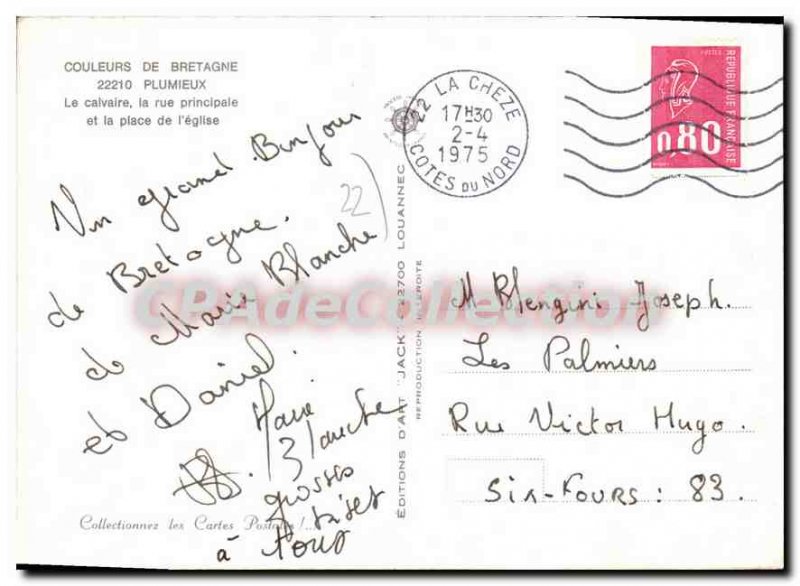 COULEURS DE BRETAGNE
22210 PLUMIEUX
Le calvaire, la rue principale
et la place de l'église
Un grand Bonjour
de Bretagne.
de Marie Blanche
et Daniel.
Marie
Blanche
grosses
bises
à tous
22
Collectionnez les Cartes Postales !...
EDITIONS D'ART "JACK" 22700 LOUANNEC
REPRODUCTION INTERDITE
22 LA CHEZE
17H30
2-4
1975
COTES DU NORD
REPUBLIQUE FRANÇAISE
POSTES
0,80
M Blengini Joseph.
Les Palmiers
Rue Victor Hugo.
Six-Fours : 83.
CPAdeCollection